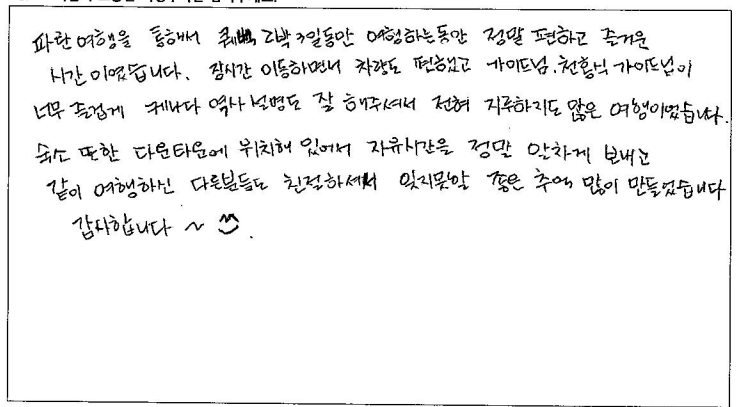 파란여행을 통해서 퀘벡 2박3일동안 여행하는동안 정말 편하고 즐거운
시간이였습니다. 장시간 이동하면서 차량도 편했고 가이드님. 천홍식 가이드님이
너무 즐겁게 캐나다 역사 설명도 잘 해주셔서 전혀 지루하지도 않은 여행이었습니다.
숙소 또한 다운타운에 위치해 있어서 자유시간을 정말 알차게 보내고
같이 여행하신 다른분들도 친절하셔서 잊지못할 좋은 추억 많이 만들었습니다
감사합니다 ~